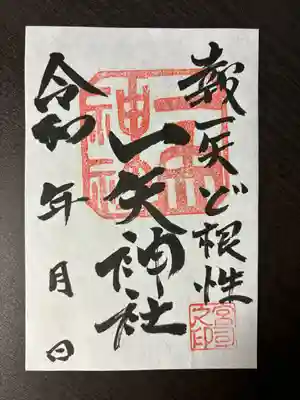 報一矢ど根性
宮司
之印
一矢
神社
一矢神社
令和 年 月 日